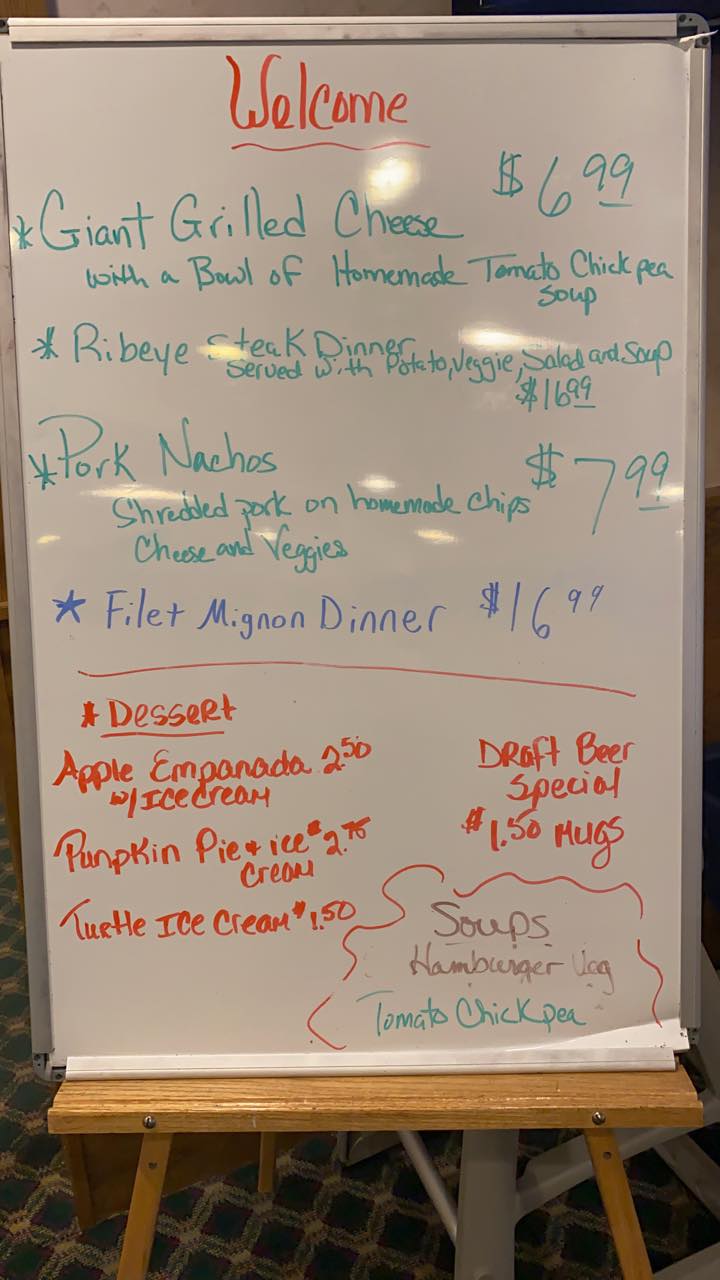 Welcome
$6.99
*Giant Grilled Cheese
with a Bowl of Homemade Tomato Chickpea
Soup
* Ribeye Steak Dinner
Served with Potato, Veggie, Salad and Soup
$16.99
*Pork Nachos $7.99
Shredded pork on homemade chips
Cheese and Veggies
* Filet Mignon Dinner $16.99
* Dessert
Apple Empanada 2.50
w/ Ice Cream
Punpkin Pie + ice $2.75
Cream
Turtle Ice Cream $1.50
Draft Beer
Special
$1.50 Mugs
Soups
Hamburger Veg
Tomato Chickpea